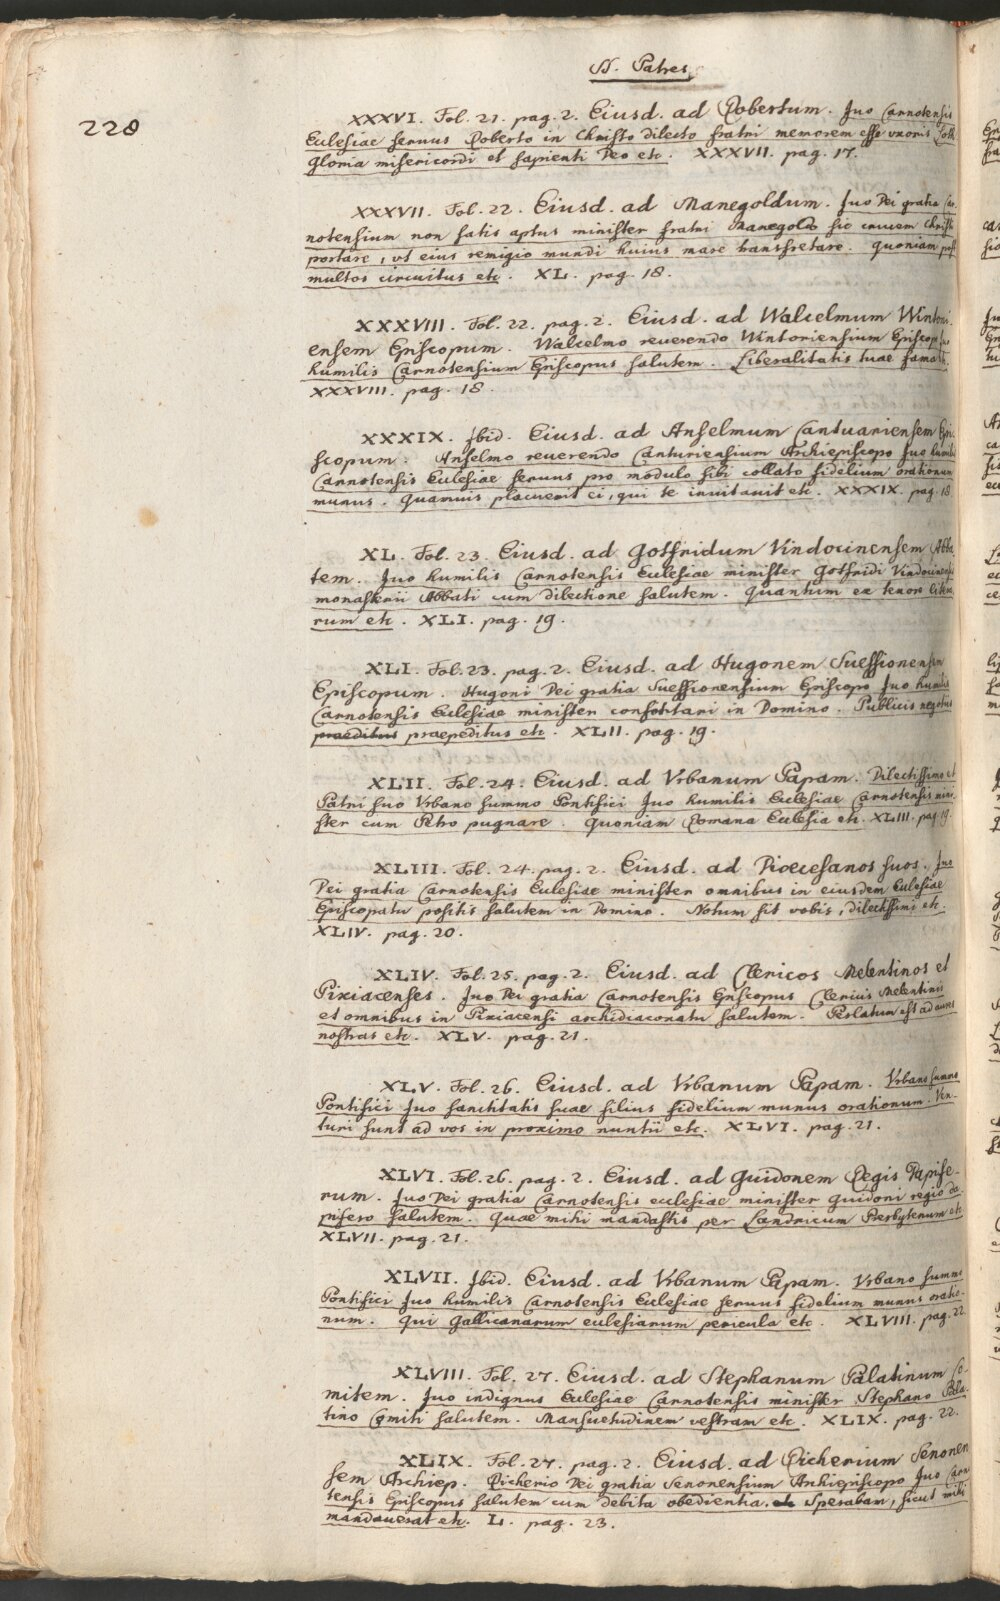 SS. Patres
228
XXXVI. Fol. 21. pag. 2. Eiusd. ad Robertum. Iuo Carnotensis
Eclesiae seruus Roberto in Christo dilecto fratri memorem esse vxoris Loth
gloria misericordi et sapienti Deo etc. XXXVII. pag. 17.
XXXVII. Fol. 22. Eiusd. ad Manegoldum. Iuo Dei gratia Car-
notensium non satis aptus minister fratri Manegoldo sic crucem Christi
portare, vt eius remigio mundi huius mare transfretare. Quoniam post
multos circuitus etc. XL. pag. 18.
XXXVIII. Fol. 22. pag. 2. Eiusd. ad Walcelmum Wintoni-
ensem Episcopum. Walcelmo reuerendo Wintoriensium Episcopo Iuo
humilis Carnotensium Episcopus salutem. Liberalitatis tuae fama etc.
XXXVIII. pag. 18.
XXXIX. Ibid. Eiusd. ad Anselmum Cantuariensem Epi-
scopum. Anselmo reuerendo Canturiensium Archiepiscopo Iuo humilis
Carnotensis Eclesiae seruus pro modulo sibi collato fidelium orationum
munus. Quamuis placuerit ei, qui te inuitauit etc. XXXIX. pag. 18
XL. Fol. 23. Eiusd. ad Gotfridum Vindocinensem Abba-
tem. Iuo humilis Carnotensis Eclesiae minister Gotfridi Vindocinensis
monasterii Abbati cum dilectione salutem. Quantum ex tenore litera-
rum etc. XLI. pag. 19.
XLI. Fol. 23. pag. 2. Eiusd. ad Hugonem Suessionensem
Episcopum. Hugoni Dei gratia Suessionensium Episcopo Iuo humilis
Carnotensis Eclesiae minister confortari in Domino. Publicis negotiis
praeditus praepeditus etc. XLII. pag. 19.
XLII. Fol. 24. Eiusd. ad Vrbanum Papam. Dilectissimo et
Patri suo Vrbano summo Pontifici Iuo humilis Eclesiae Carnotensis mini-
ster cum Petro pugnare. Quoniam Romana Eclesia etc. XLIII. pag. 19.
XLIII. Fol. 24. pag. 2. Eiusd. ad Dioecesanos suos. Iuo
Dei gratia Carnotensis Eclesiae minister omnibus in eiusdem Eclesiae
Episcopatu positis salutem in Domino. Notum sit vobis, dilectissimi etc.
XLIV. pag. 20.
XLIV. Fol. 25. pag. 2. Eiusd. ad Clericos Melentinos et
Pixiacenses. Iuo Dei gratia Carnotensis Episcopus Clericis Melentinis
et omnibus in Pixiacensi archidiaconatu salutem. Perlatum est ad aures
nostras etc. XLV. pag. 21.
XLV. Fol. 26. Eiusd. ad Vrbanum Papam. Vrbano summo
Pontifici Iuo sanctitatis suae filius fidelium munus orationum. Ven-
turi sunt ad vos in proximo nuntii etc. XLVI. pag. 21.
XLVI. Fol. 26. pag. 2. Eiusd. ad Guidonem Regis Dapife-
rum. Iuo Dei gratia Carnotensis eclesiae minister Guidoni regio da-
pifero salutem. Quae mihi mandastis per Landricum Presbyterum etc
XLVII. pag. 21.
XLVII. Ibid. Eiusd. ad Vrbanum Papam. Vrbano summo
Pontifici Iuo humilis Carnotensis Eclesiae seruus fidelium munus oratio-
num. Qui Gallicanarum eclesiarum pericula etc. XLVIII. pag. 22.
XLVIII. Fol. 27. Eiusd. ad Stephanum Palatinum Co-
mitem. Iuo indignus Eclesiae Carnotensis minister Stephano Pala-
tino Comiti salutem. Mansuetudinem vestram etc. XLIX. pag. 22.
XLIX. Fol. 27. pag. 2. Eiusd. ad Richerium Senonen
sem Archiep. Richerio Dei gratia Senonensium Archiepiscopo Iuo Carno
tensis Episcopus salutem cum debita obedientia. Sperabam, sicut mihi
mandauerat etc. L. pag. 23.